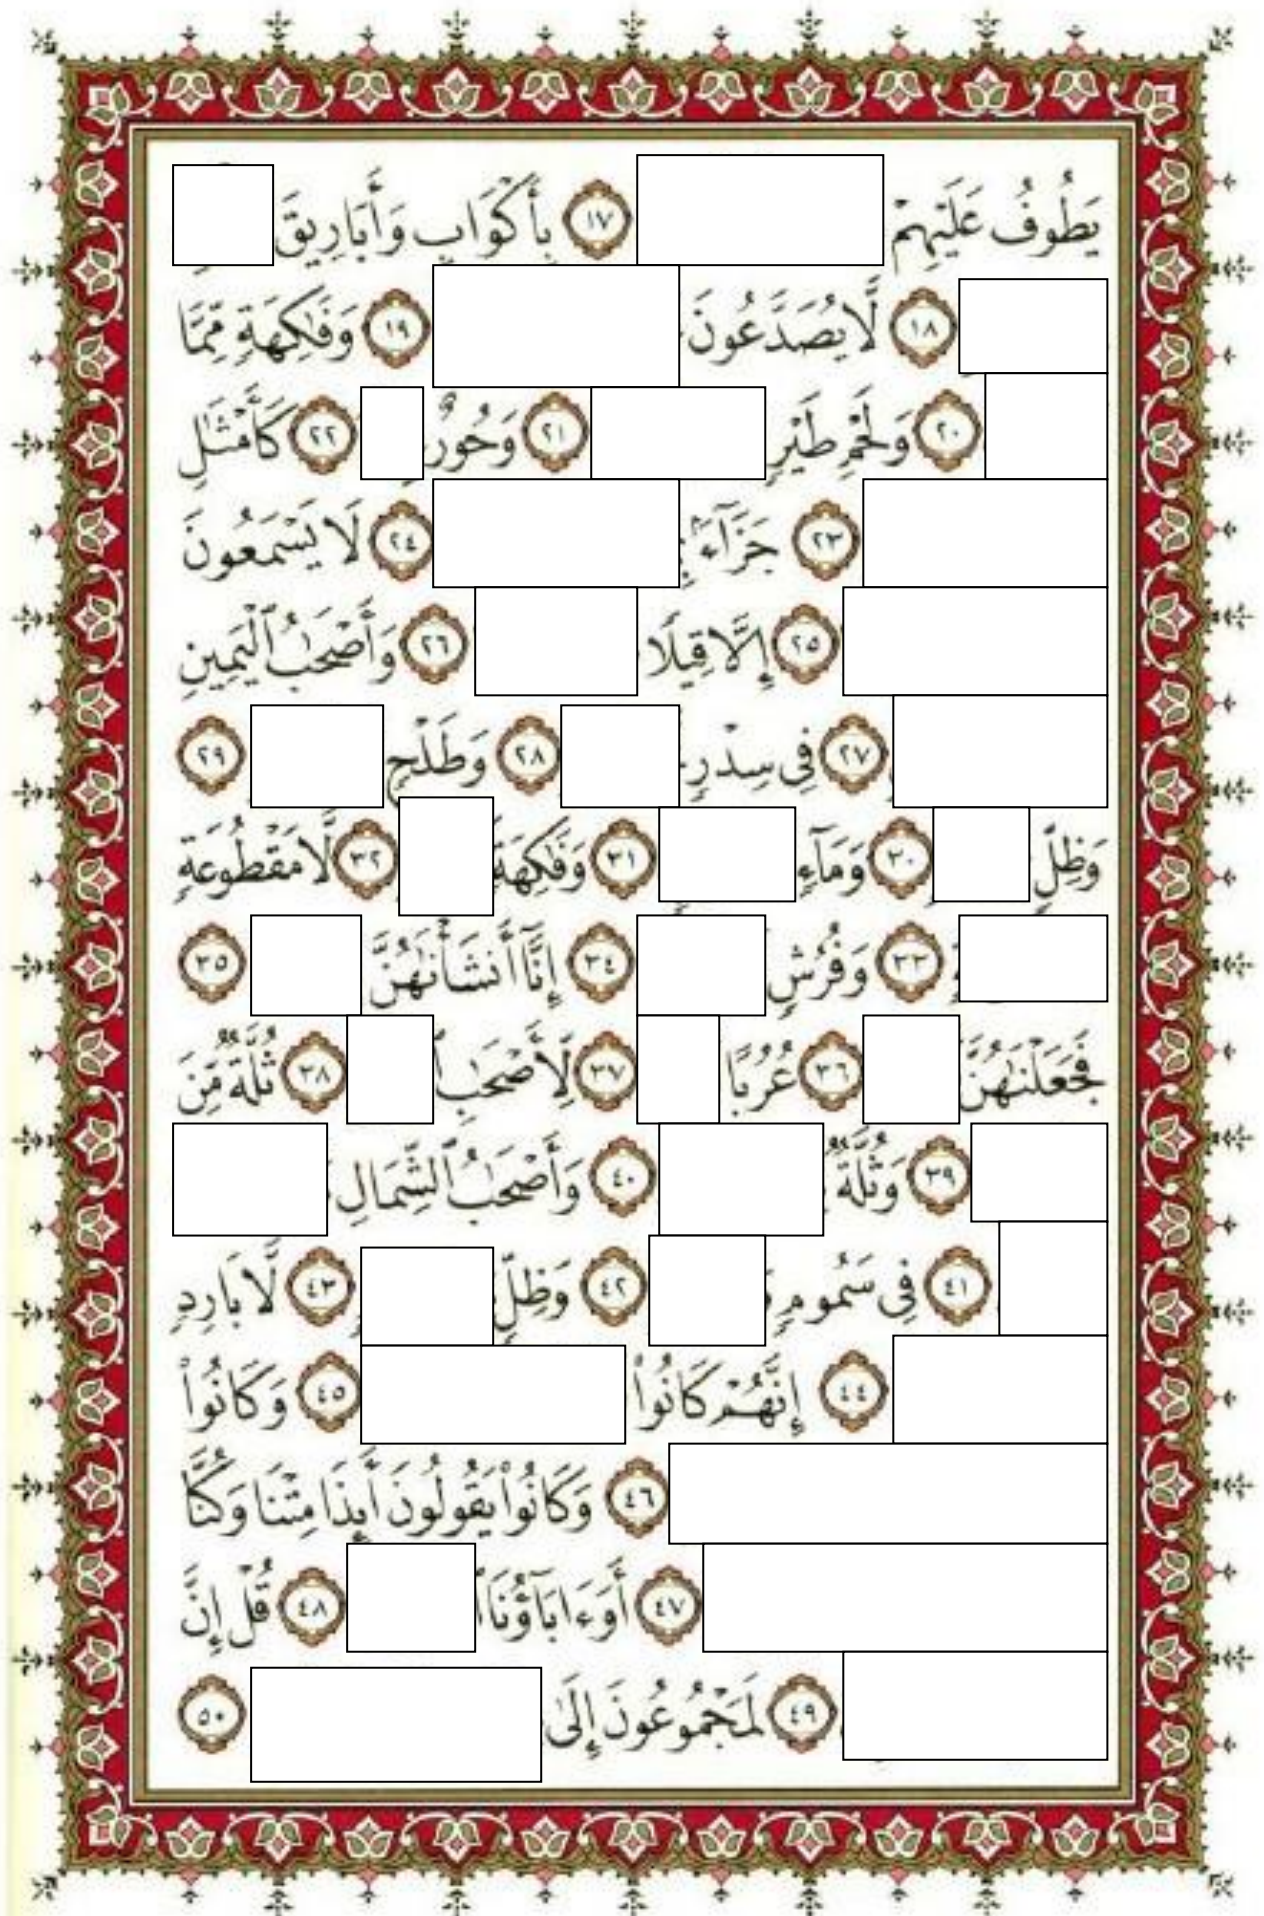 يَطُوفُ عَلَيْهِمْ ١٧ بِأَكْوَابٍ وَأَبَارِيقَ
١٨ لَّا يُصَدَّعُونَ ١٩ وَفَٰكِهَةٍ مِّمَّا
٢٠ وَلَحْمِ طَيْرٍ ٢١ وَحُورٌ ٢٢ كَأَمْثَٰلِ
٢٣ جَزَآءًۢ ٢٤ لَا يَسْمَعُونَ
٢٥ إِلَّا قِيلًا ٢٦ وَأَصْحَٰبُ ٱلْيَمِينِ
٢٧ فِى سِدْرٍ ٢٨ وَطَلْحٍ ٢٩
وَظِلٍّ ٣٠ وَمَآءٍ ٣١ وَفَٰكِهَةٍ ٣٢ لَّا مَقْطُوعَةٍ
٣٣ وَفُرُشٍ ٣٤ إِنَّآ أَنشَأْنَٰهُنَّ ٣٥
فَجَعَلْنَٰهُنَّ ٣٦ عُرُبًا ٣٧ لِّأَصْحَٰبِ ٣٨ ثُلَّةٌ مِّنَ
٣٩ وَثُلَّةٌ ٤٠ وَأَصْحَٰبُ ٱلشِّمَالِ
٤١ فِى سَمُومٍ ٤٢ وَظِلٍّ ٤٣ لَّا بَارِدٍ
٤٤ إِنَّهُمْ كَانُوا۟ ٤٥ وَكَانُوا۟
٤٦ وَكَانُوا۟ يَقُولُونَ أَئِذَا مِتْنَا وَكُنَّا
٤٧ أَوَءَابَآؤُنَا ٤٨ قُلْ إِنَّ
٤٩ لَمَجْمُوعُونَ إِلَىٰ ٥٠